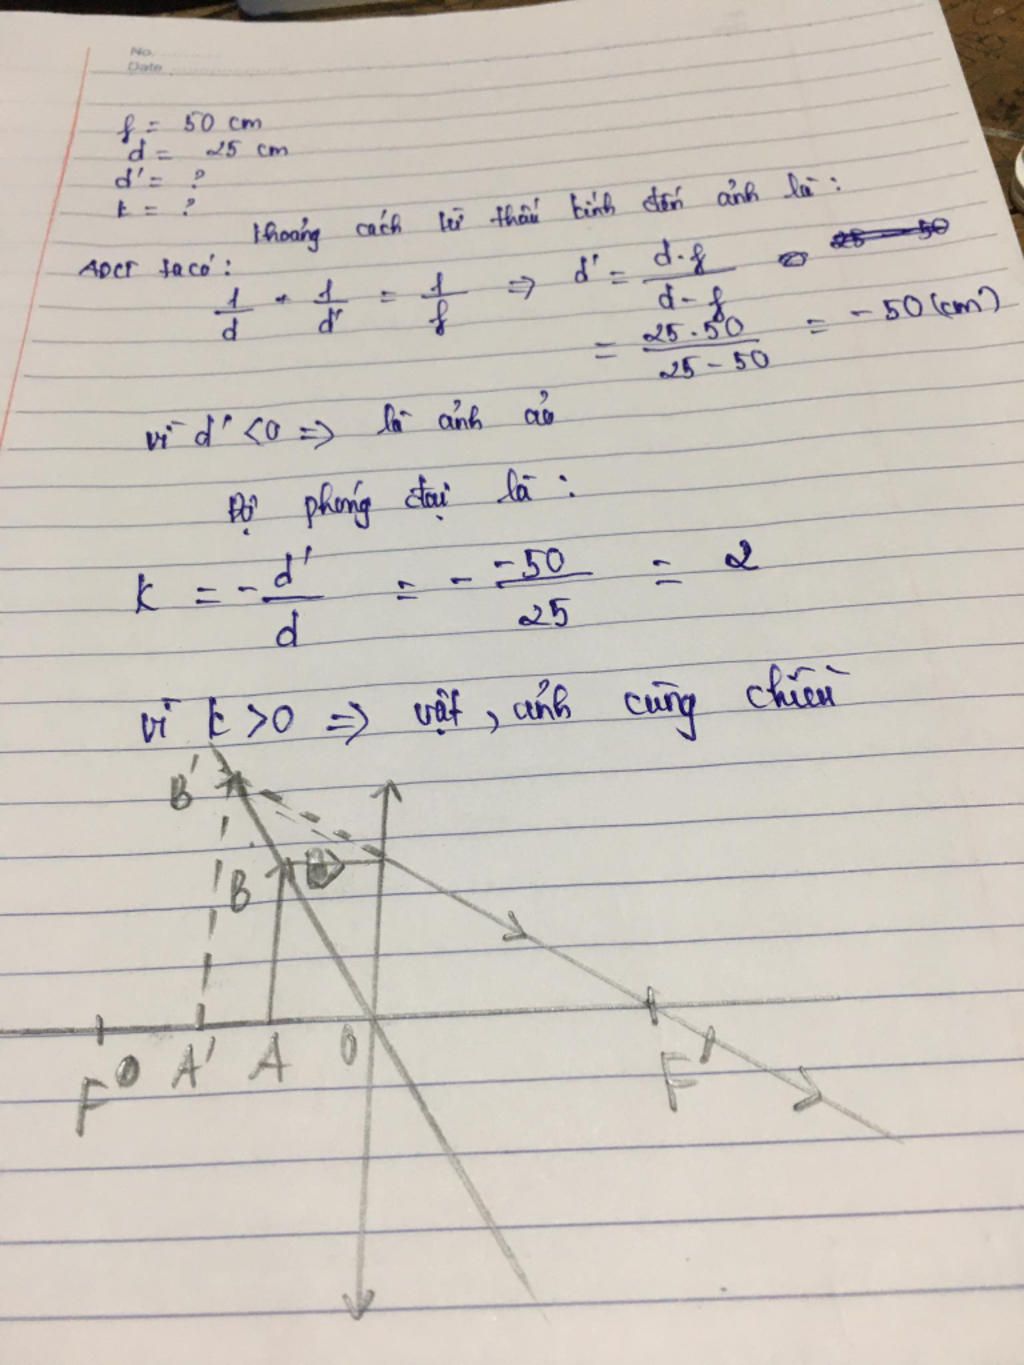 No.
Date
f = 50 cm
d = 25 cm
d' = ?
k = ?
Khoảng cách từ thấu kính đến ảnh là :
ADCT ta có :
1/d + 1/d' = 1/f => d' = d.f/d - f
= 25.50/25 - 50 = - 50 (cm)
vì d' < 0 => là ảnh ảo
Độ phóng đại là :
k = - d'/d = - -50/25 = 2
vì k > 0 => vật, ảnh cùng chiều
B'
B
F A' A O F'